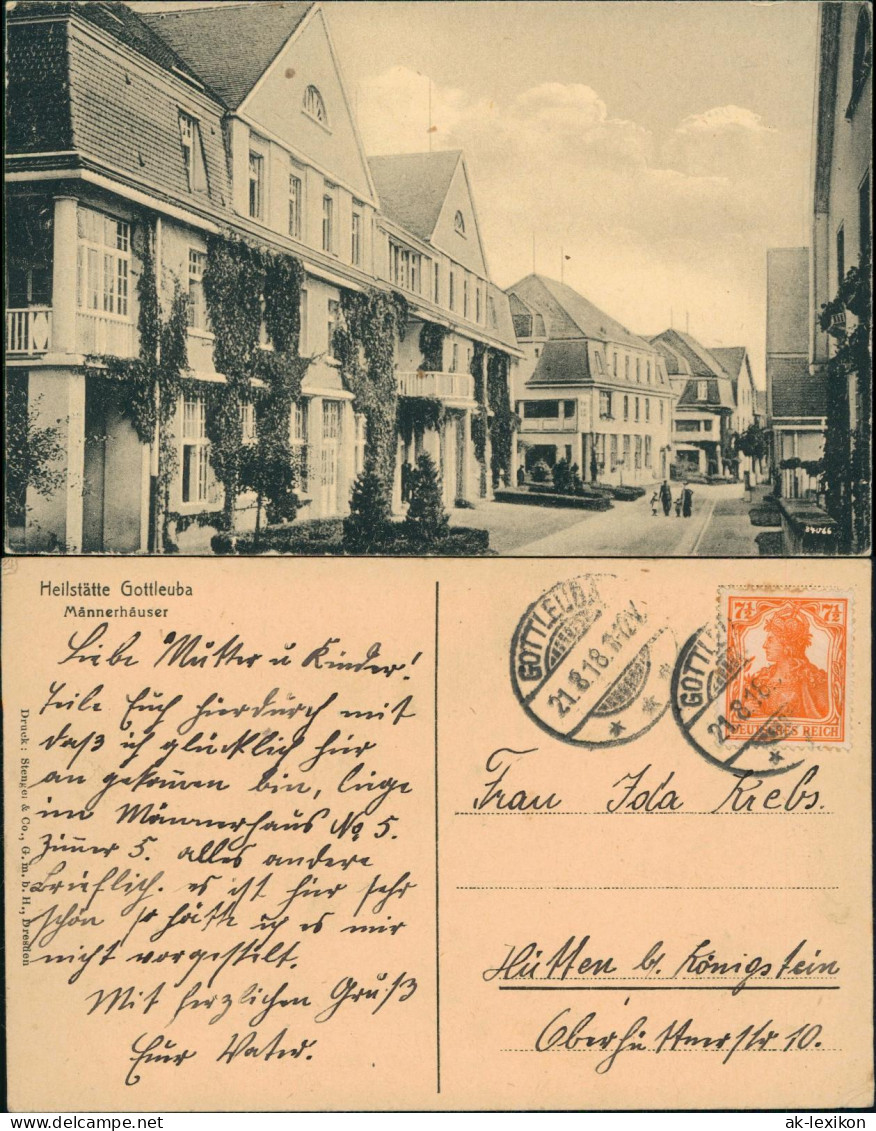 24066
Heilstätte Gottleuba
Männerhäuser
Liebe Mutter u Kinder!
Teile Euch hierdurch mit
daß ich glücklich hier
an gekommen bin, liege
im Männerhaus No 5.
Zimmer 5. alles andere
Brieflich. es ist hier sehr
schön so hätte ich es mir
nicht vorgestellt.
Mit herzlichen Gruß
Euer Vater.
Druck: Stengel & Co., G. m. b. H., Dresden
GOTTLEUBA
21.8.18. 11-12V.
GOTTLEUBA
21.8.18
7½ 7½
DEUTSCHES REICH
Frau Ida Krebs.
Hütten b. Königstein
Oberhüttnerstr 10.
ak-lexikon.com